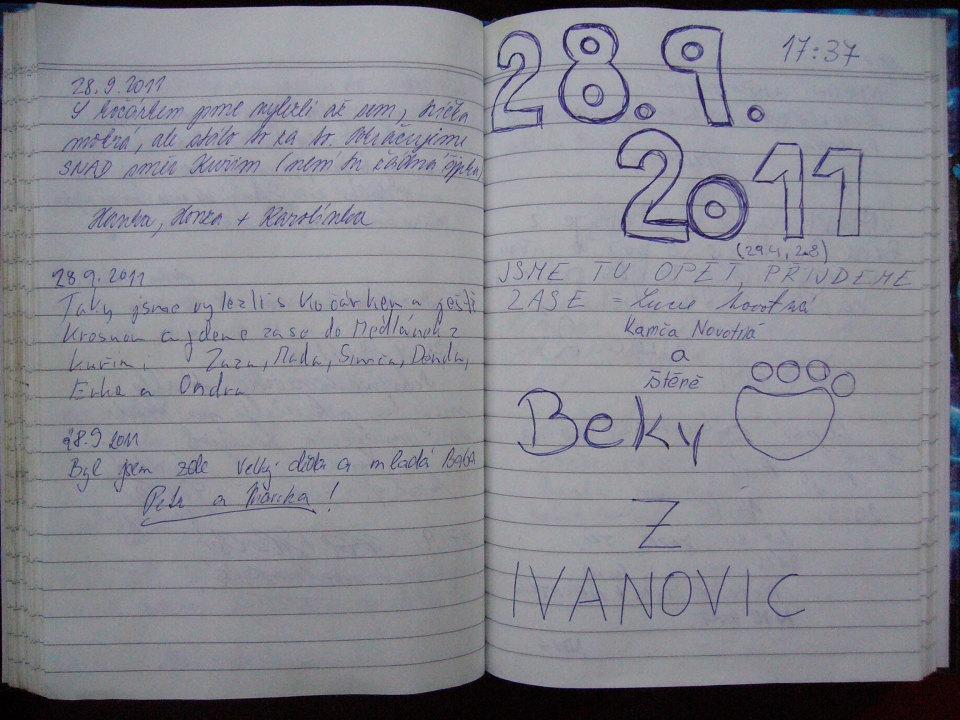 28.9.2011
S kočárkem jsme vylezli až sem, trička
mokrá, ale stálo to za to. Pokračujeme
SNAD směr Kuřim (není tu žádná šipka)
Hanka, Honza + Karolínka
28.9.2011
Taky jsme vylezli s kočárkem a ještě
Krosnou a jdeme zase do Medlánek z
Kuřimi. Zuza, Maďa, Simča, Denda,
a Ondra
28.9 2011
Byl jsem zde Velký děda a mladá Baba
Petr a !
28.9. 17:37
2011
(29.4, 2.8)
JSME TU OPĚT, PŘIJDEME
ZASE = Lucie Novotná
Kamča Novotná
a
Štěně
Beky
Z
IVANOVIC